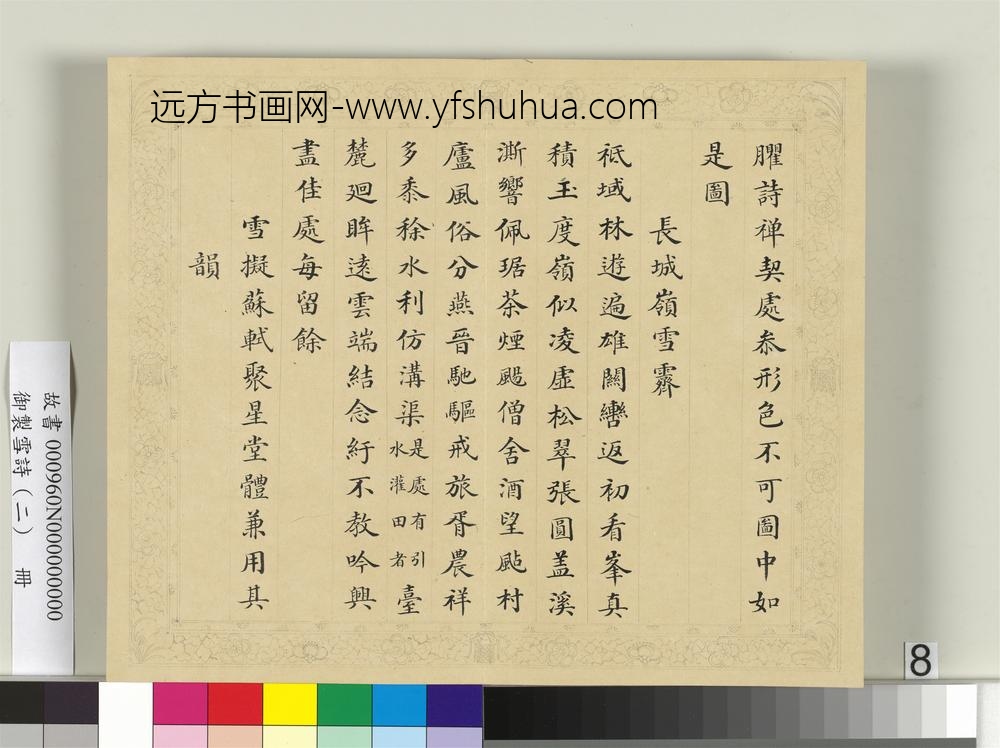 远方书画网-www.yfshuhua.com
臞詩禅契處叅形色不可圖中如
是圖
長城嶺雪霽
祗域林遊遍雄關轡返初看峯真
積玉度嶺似凌虛松翠張圓盖溪
澌響佩琚茶煙颺僧舍酒望颭村
廬風俗分燕晉馳驅戒旅胥農祥
多黍稌水利仿溝渠是處有引水灌田者臺
麓迴眸遠雲端結念紆不教吟興
盡佳處每留餘
雪擬蘇軾聚星堂體兼用其
韻
故書 000960N000000000
御製雪詩(二) 冊
8